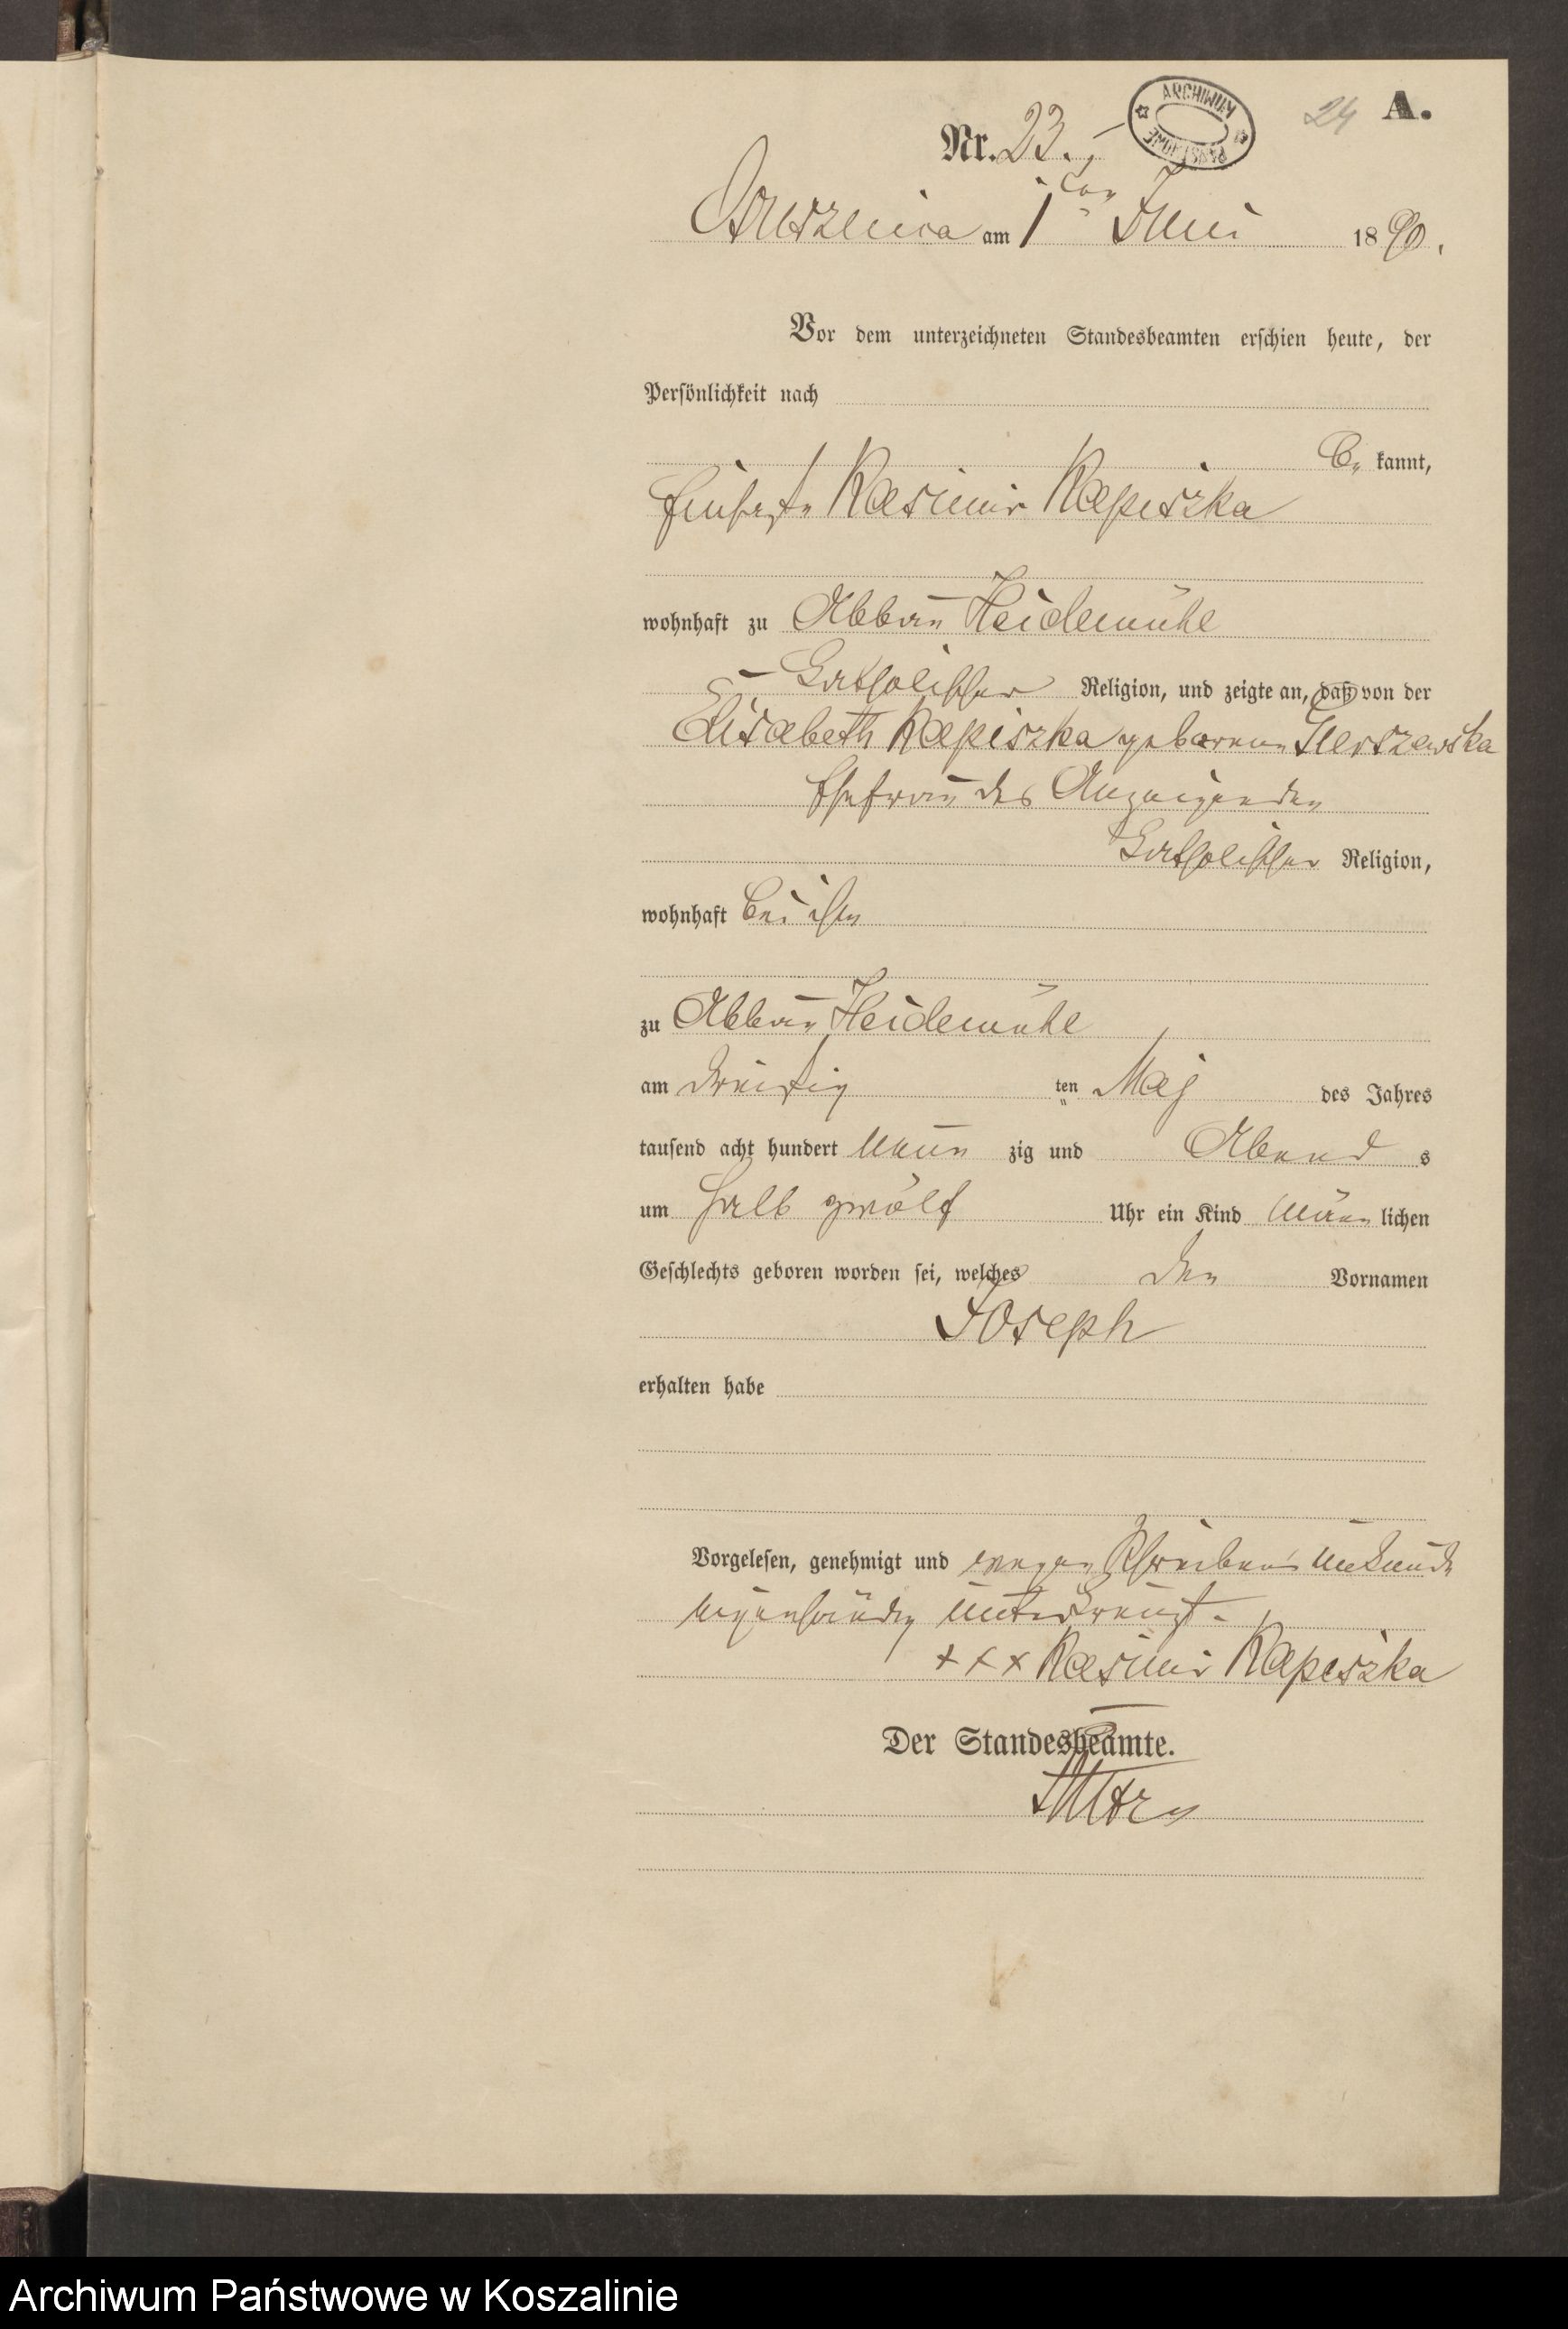 ARCHIWUM PAŃSTWOWE
24 A.
Nr. 23.
am 1ten Juni 1890.
Vor dem unterzeichneten Standesbeamten erschien heute, der
Persönlichkeit nach
be kannt,
Kasimir Kapiszka
wohnhaft zu Abbau Heidemühl
katholischer Religion, und zeigte an, daß von der
Elisabeth Kapiszka geborene
Ehefrau des Anzeigenden
katholischer Religion,
wohnhaft bei ihm
zu Abbau Heidemühl
am dreißig ten Maj des Jahres
tausend acht hundert neun zig und Abend s
um halb zwölf Uhr ein Kind männ lichen
Geschlechts geboren worden sei, welches den Vornamen
Joseph
erhalten habe
Vorgelesen, genehmigt und wegen Schreibens unkunde
eigenhändig unterkreuzt.
+++ Kasimir Kapiszka
Der Standesbeamte.
Archiwum Państwowe w Koszalinie